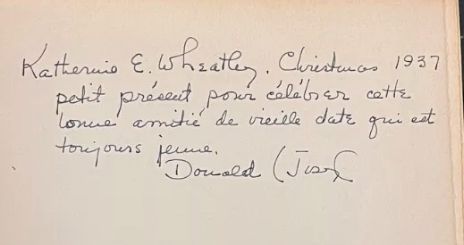 Katherine E. Wheatley. Christmas 1937
petit présent pour célébrer cette
bonne amitié de vieille date qui est
toujours jeune.
Donald (